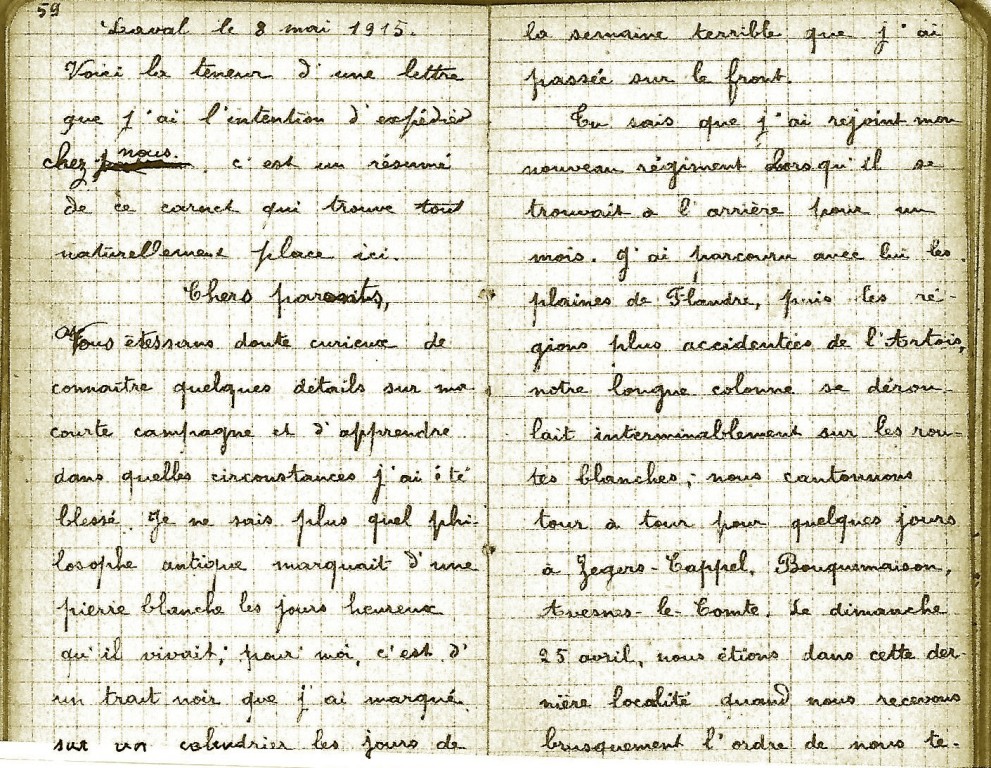 59
Laval le 8 mai 1915.
Voici la teneur d'une lettre
que j'ai l'intention d'expédier
chez nous. c'est un résumé
de ce carnet qui trouve tout
naturellement place ici.
Chers parents,
Vous êtes sans doute curieux de
connaitre quelques détails sur ma
courte campagne et d'apprendre
dans quelles circonstances j'ai été
blessé. Je ne sais plus quel phi-
losophe antique marquait d'une
pierre blanche les jours heureux
qu'il vivait; pour moi, c'est d'
un trait noir que j'ai marqué
sur un calendrier les jours de
la semaine terrible que j'ai
passée sur le front.
Tu sais que j'ai rejoint mon
nouveau régiment Lorsqu'il se
trouvait à l'arrière pour un
mois. J'ai parcouru avec lui les
plaines de Flandre, puis les ré-
gions plus accidentées de l'Artois,
notre longue colonne se dérou-
lait interminablement sur les rou-
tes blanches; nous cantonnons
tour à tour pour quelques jours
à Zegers-Cappel, Bouquemaison,
Avesnes-le-Comte. Le dimanche
25 avril, nous étions dans cette der-
nière localité quand nous recevons
brusquement l'ordre de nous te-